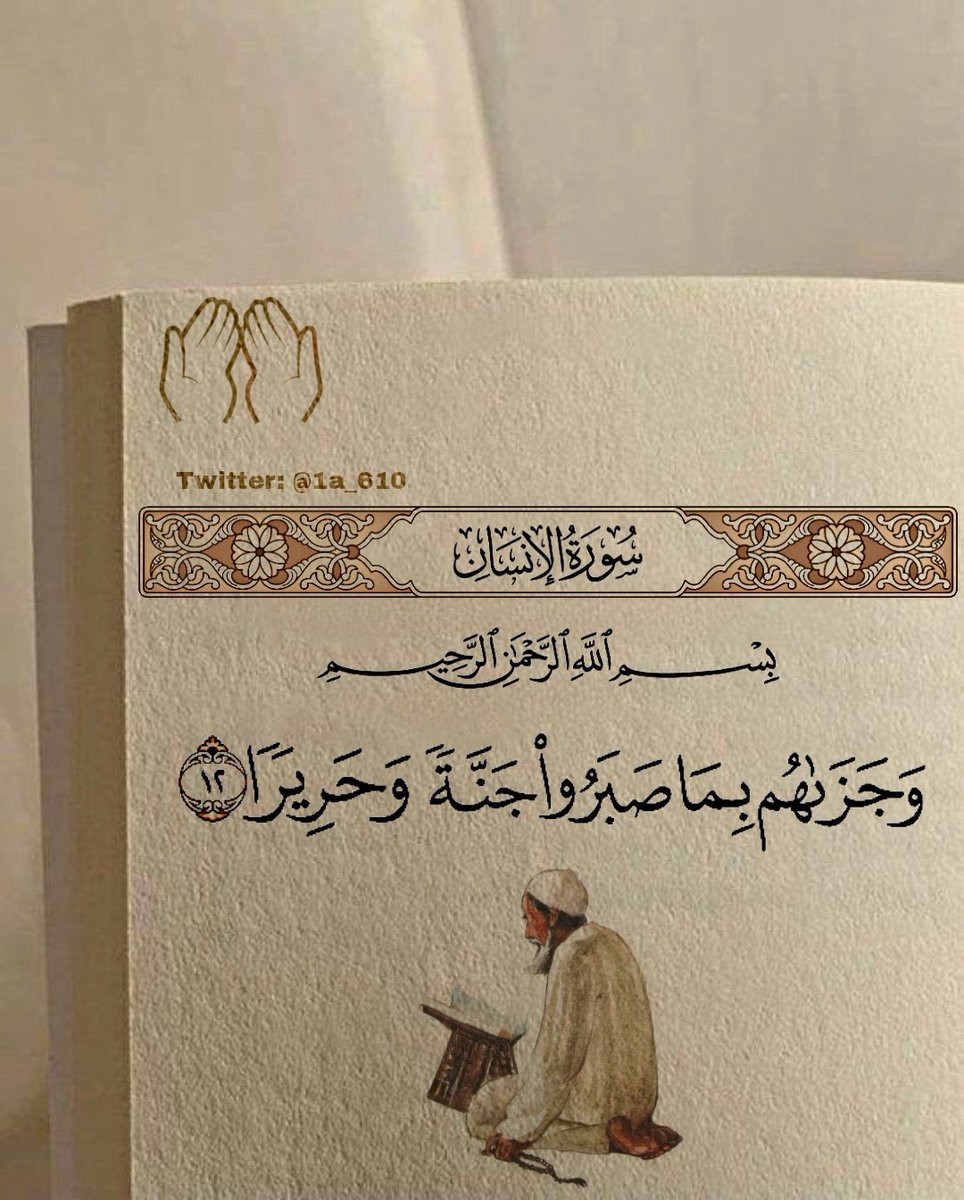 Twitter: @1a_610
سُورَةُ الإِنسَانِ
بِسْمِ ٱللَّهِ ٱلرَّحْمَٰنِ ٱلرَّحِيمِ
وَجَزَىٰهُم بِمَا صَبَرُوا۟ جَنَّةً وَحَرِيرًا ١٢